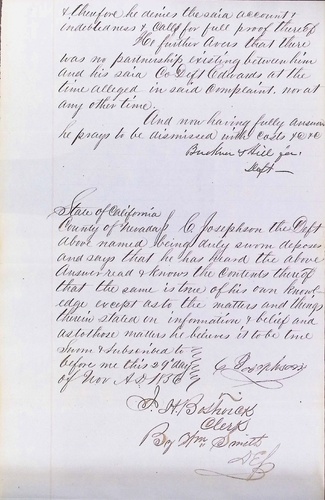 & therefore he denies the said account &
indebtedness & calls for full proof thereof
He further avers that there
was no partnership existing between him
and his said Co Deft Edwards, at the
time alleged in said Complaint, nor at
any other time.
And now having fully answered
he prays to be dismissed with Costs &c &c
Buckner & Hill for
Deft
State of California
County of Nevada } C Josephson the Deft
above named being duly sworn deposes
and says that he has heard the above
Answer read & knows the Contents thereof
that the same is true of his own know-
ledge except as to the matters and things
therein stated on information & belief and
as to those matters he believes it to be true
Sworn & subscribed to
before me this 29th day
of Nov A D 1856
C Josephson
Clerk
By Wm Smith